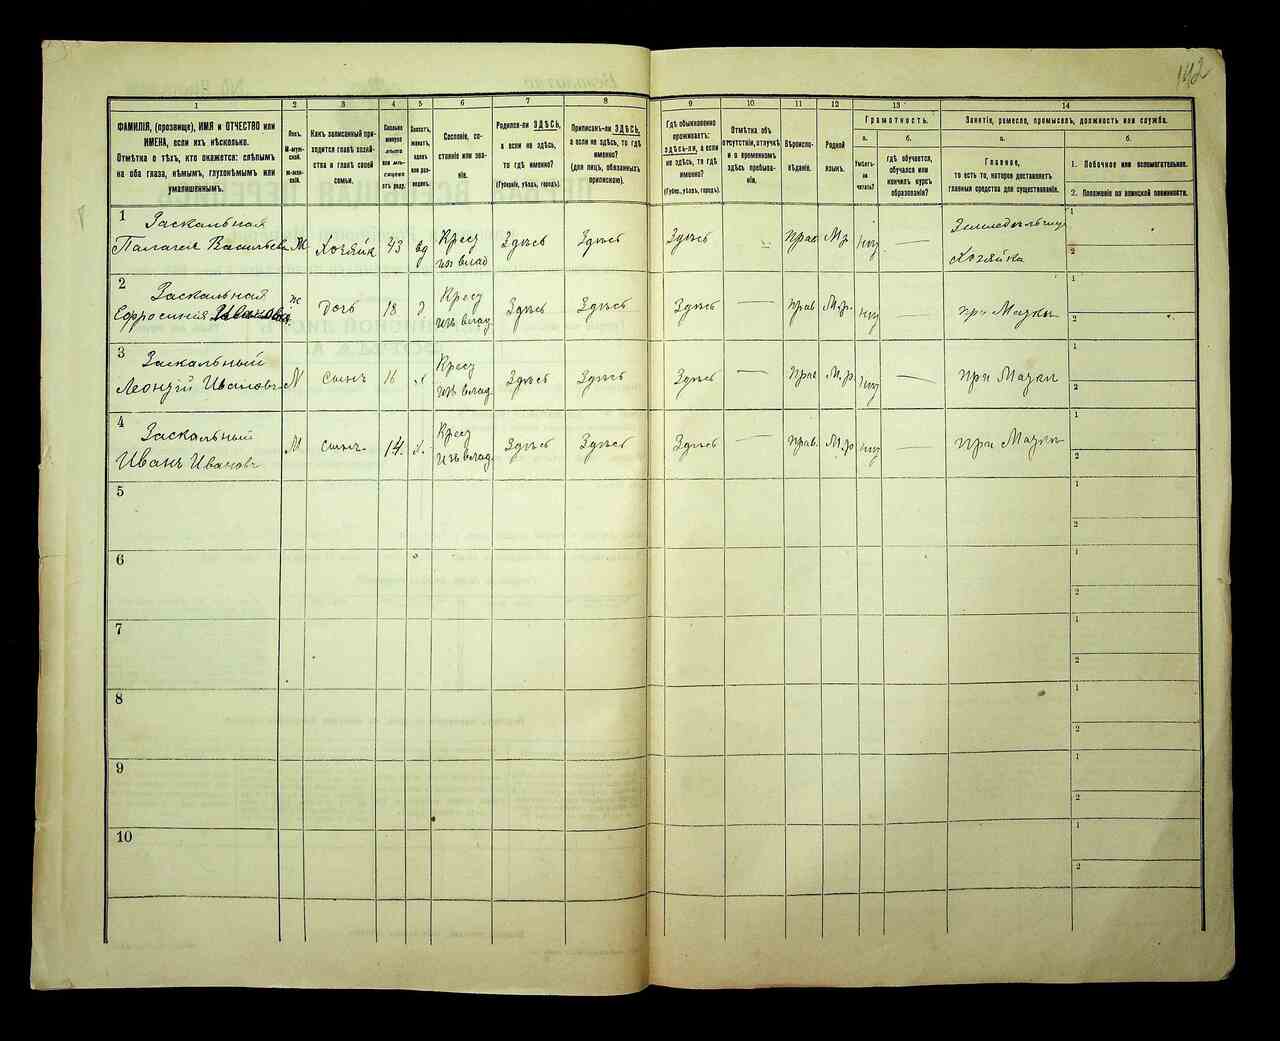 142
1
2
3
4
5
6
7
8
9
10
11
12
13
14
ФАМИЛІЯ, (прозвище), ИМЯ и ОТЧЕСТВО или
ИМЕНА, если ихъ нѣсколько.
Отмѣтка о тѣхъ, кто окажется: слѣпымъ
на оба глаза, нѣмымъ, глухонѣмымъ или
умалишеннымъ.
Полъ.
М-муж-
ской.
Ж-жен-
скій.
Какъ записанный при-
ходится главѣ хозяй-
ства и главѣ своей
семьи.
Сколько
минуло
лѣтъ
или мѣ-
сяцевъ
отъ роду.
Холостъ,
женатъ,
вдовъ
или раз-
веденъ.
Сословіе, со-
стояніе или зва-
ніе.
Родился-ли ЗДѢСЬ,
а если не здѣсь,
то гдѣ именно?
(Губернія, уѣздъ, городъ).
Приписанъ-ли ЗДѢСЬ,
а если не здѣсь, то гдѣ
именно?
(для лицъ, обязанныхъ
припискою).
Гдѣ обыкновенно
проживаетъ:
здѣсь-ли, а если
не здѣсь, то гдѣ
именно?
(Губерн., уѣздъ, городъ).
Отмѣтка объ
отсутствіи, отлучкѣ
и о временномъ
здѣсь пребыва-
ніи.
Вѣроиспо-
вѣданіе.
Родной
языкъ.
Грамотность.
а.
Умѣетъ-
ли чи-
тать?
б.
гдѣ обучается,
обучался или
кончилъ курсъ
образованія?
Занятіе, ремесло, промыселъ, должность или служба.
а.
Главное,
то есть то, которое доставляетъ
главныя средства для существованія.
б.
1. Побочное или вспомогательное.
2. Положеніе по воинской повинности.
1
Заскальная
Палагея Васильева
Ж
Хозяйка
43
вд
Крест
изъ влад
Здѣсь
Здѣсь
Здѣсь
–
прав
М.р
нѣт
—
Земледѣлица
Хозяйка
1
2
2
Заскальная
Ефросинія
Ж
Дочь
18
д
Крест
изъ влад
Здѣсь
Здѣсь
Здѣсь
—
прав
М.р.
нѣт
—
при Матки
1
2
3
Заскальный
Леонтій Ивановъ
М
сынъ
16
х
Крест
изъ влад
Здѣсь
Здѣсь
Здѣсь
—
прав
М.р
нѣт
—
при Матки
1
2
4
Заскальный
Иванъ Ивановъ
М
сынъ
14.
х.
Крест
изъ влад
Здѣсь
Здѣсь
Здѣсь
—
прав.
М.р
нѣт
—
при Матки
1
2
5
1
2
6
1
2
7
1
2
8
1
2
9
1
2
10
1
2